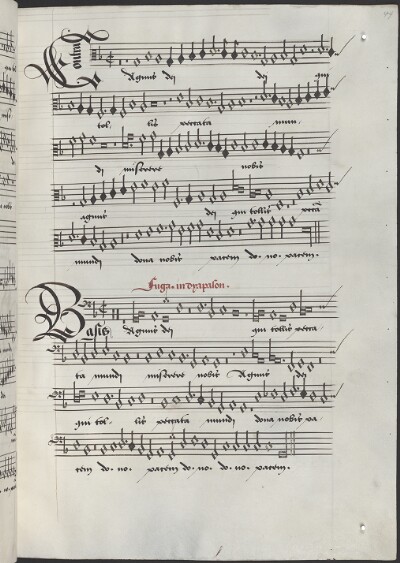 Contra
Agnus dei dei qui
tol. lis peccata mun.
di miserere nobis
agnus dei qui tollis pecca
mundi dona nobis pacem do. no. pacem.
Fuga. in dyapason.
Basis Agnus dei qui tollis pecca
ta mundi miserere nobis Agnus dei
qui tol. lis peccata mundi dona nobis pa
cem do. no. pacem do. no. do. no. pacem.